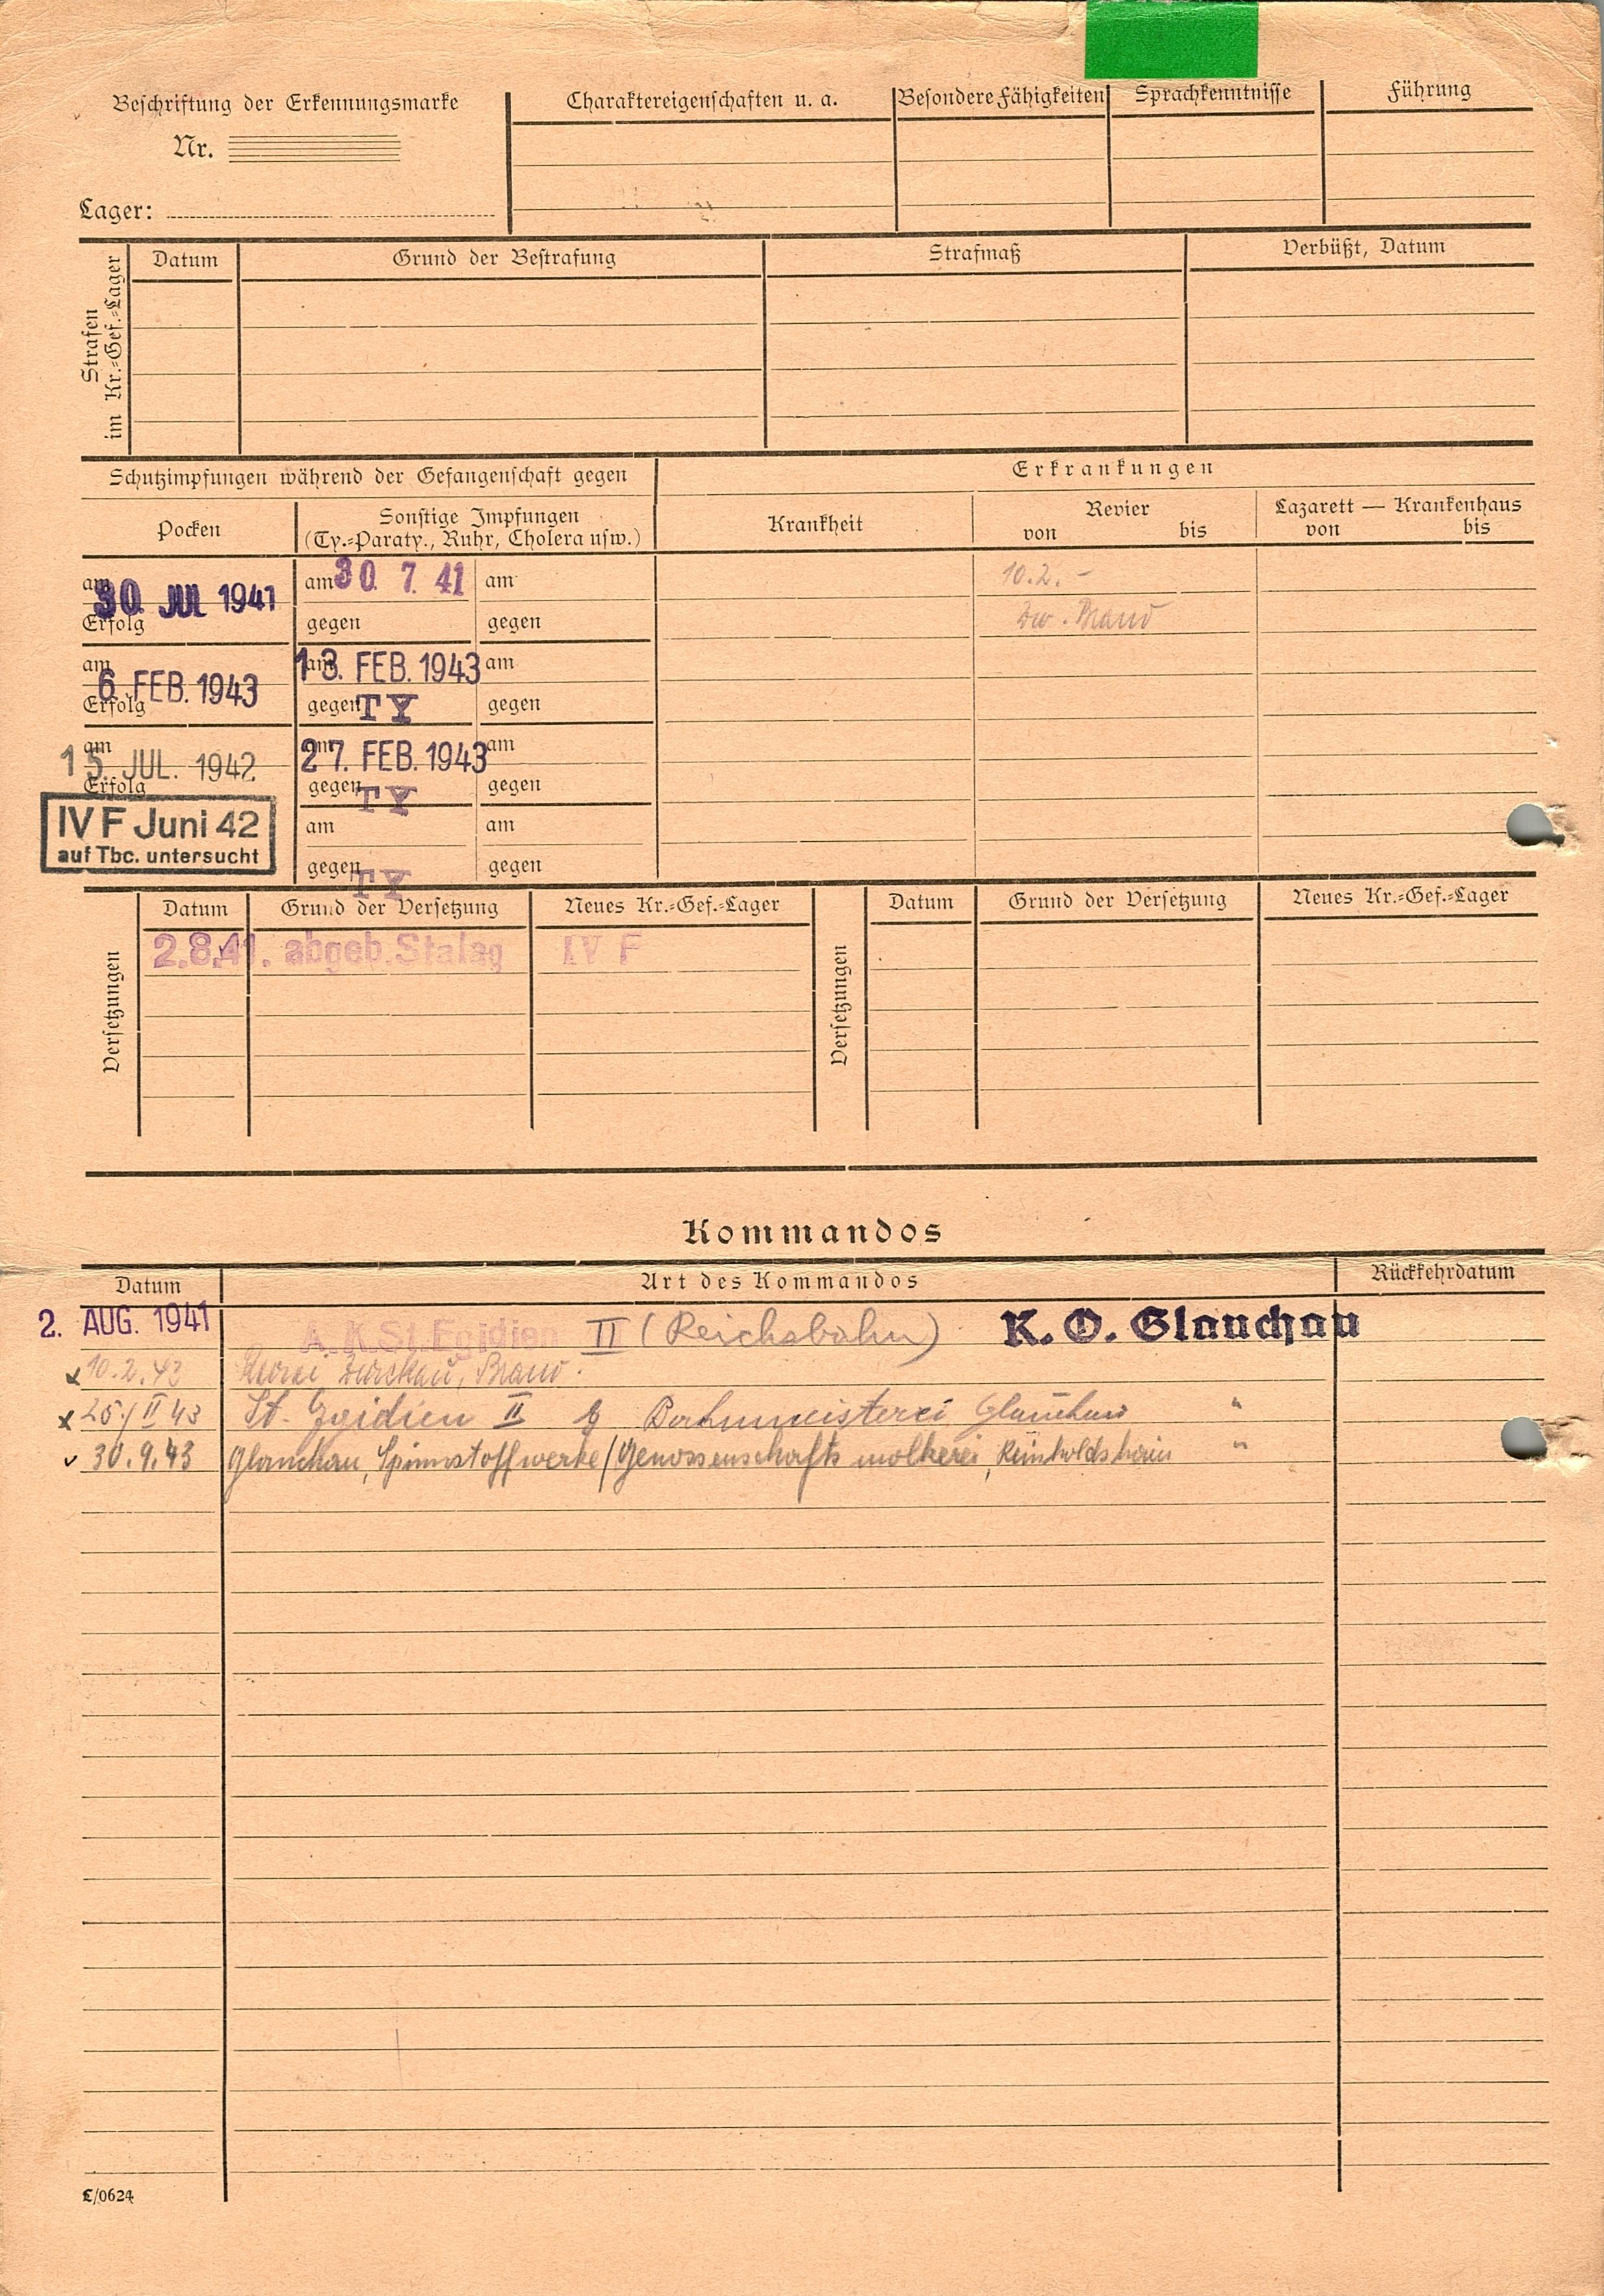 Beschriftung der Erkennungsmarke
Nr.
Lager:
Charaktereigenschaften u. a.
Besondere Fähigkeiten
Sprachkenntnisse
Führung
Strafen
im Kr.=Gef.=Lager
Datum
Grund der Bestrafung
Strafmaß
Verbüßt, Datum
Schutzimpfungen während der Gefangenschaft gegen
Erkrankungen
Pocken
Sonstige Impfungen
(Ty.=Paraty., Ruhr, Cholera usw.)
Krankheit
Revier
von bis
Lazarett — Krankenhaus
von bis
am 30. JUL 1941
Erfolg
am 30. 7. 41 am
gegen gegen
10.2. –
Zw. Brand
am 6 FEB. 1943
Erfolg
am 13. FEB. 1943 am
gegen TY gegen
am 15. JUL. 1942
Erfolg
am 27. FEB. 1943 am
gegen TY gegen
IV F Juni 42
auf Tbc. untersucht
am am
gegen TY gegen
Versetzungen
Datum
Grund der Versetzung
Neues Kr.=Gef.=Lager
2.8.41. abgeb. Stalag IV F
Versetzungen
Datum
Grund der Versetzung
Neues Kr.=Gef.=Lager
Kommandos
Datum
Art des Kommandos
Rückkehrdatum
2. AUG. 1941 A. K. St. Egidien II (Reichsbahn) K. O. Glauchau
x 10.2.43 Revier Zwickau, Brand.
x 25/II 43 St. Egidien II Bahnmeisterei Glauchau "
v 30.9.43 Glauchau, Spinnstoffwerke/Genossenschafts molkerei, Reinholdshain "
L/0624